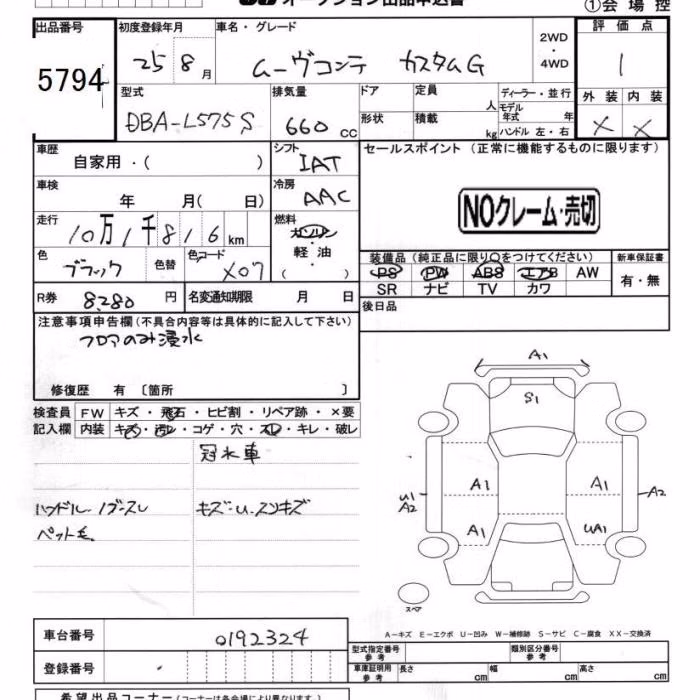 オークション出品申込書
①会場控
出品番号 初度登録年月 車名・グレード 2WD・4WD 評価点
5794 25 8月 ムーヴコンテ カスタムG 1
型式 排気量 ドア 定員 人 ディーラー・並行 外装 内装
モデル年式 年
DBA-L575S 660 cc 形状 積載 kg ハンドル 左・右 × ×
車歴 シフト セールスポイント(正常に機能するものに限ります)
自家用・( ) IAT
車検 冷房
年 月(日) AAC NOクレーム・売切
走行 燃料
10万1千816km ガソリン・軽油・( )
色 色替 色コード 装備品(純正品に限り○をつけてください) 新車保証書
ブラック X07 PS PW ABS エアB AW 有・無
SR ナビ TV カワ
R券 8,280円 名変通知期限 月 日 後日品
注意事項申告欄(不具合内容等は具体的に記入して下さい)
フロアのみ浸水
修復歴 有〔箇所 〕
検査員 FW キズ・飛石・ヒビ割・リペア跡・×要
記入欄 内装 キズ・汚レ・コゲ・穴・スレ・キレ・破レ
冠水車
ハンドル、ノブースレ キズ・U・スンキズ
ペット毛
A1
S1
A1 A1
U1 A2 A2
A1 UA1
スペア
A-キズ E-エクボ U-凹み W-補修跡 S-サビ C-腐食 XX-交換済
車台番号 0192324
型式指定番号 参考 類別区分番号 参考
登録番号 車庫証明用 参考 長さ cm 幅 cm 高さ cm
希望出品コーナー(コーナーは各会場により異なります。)